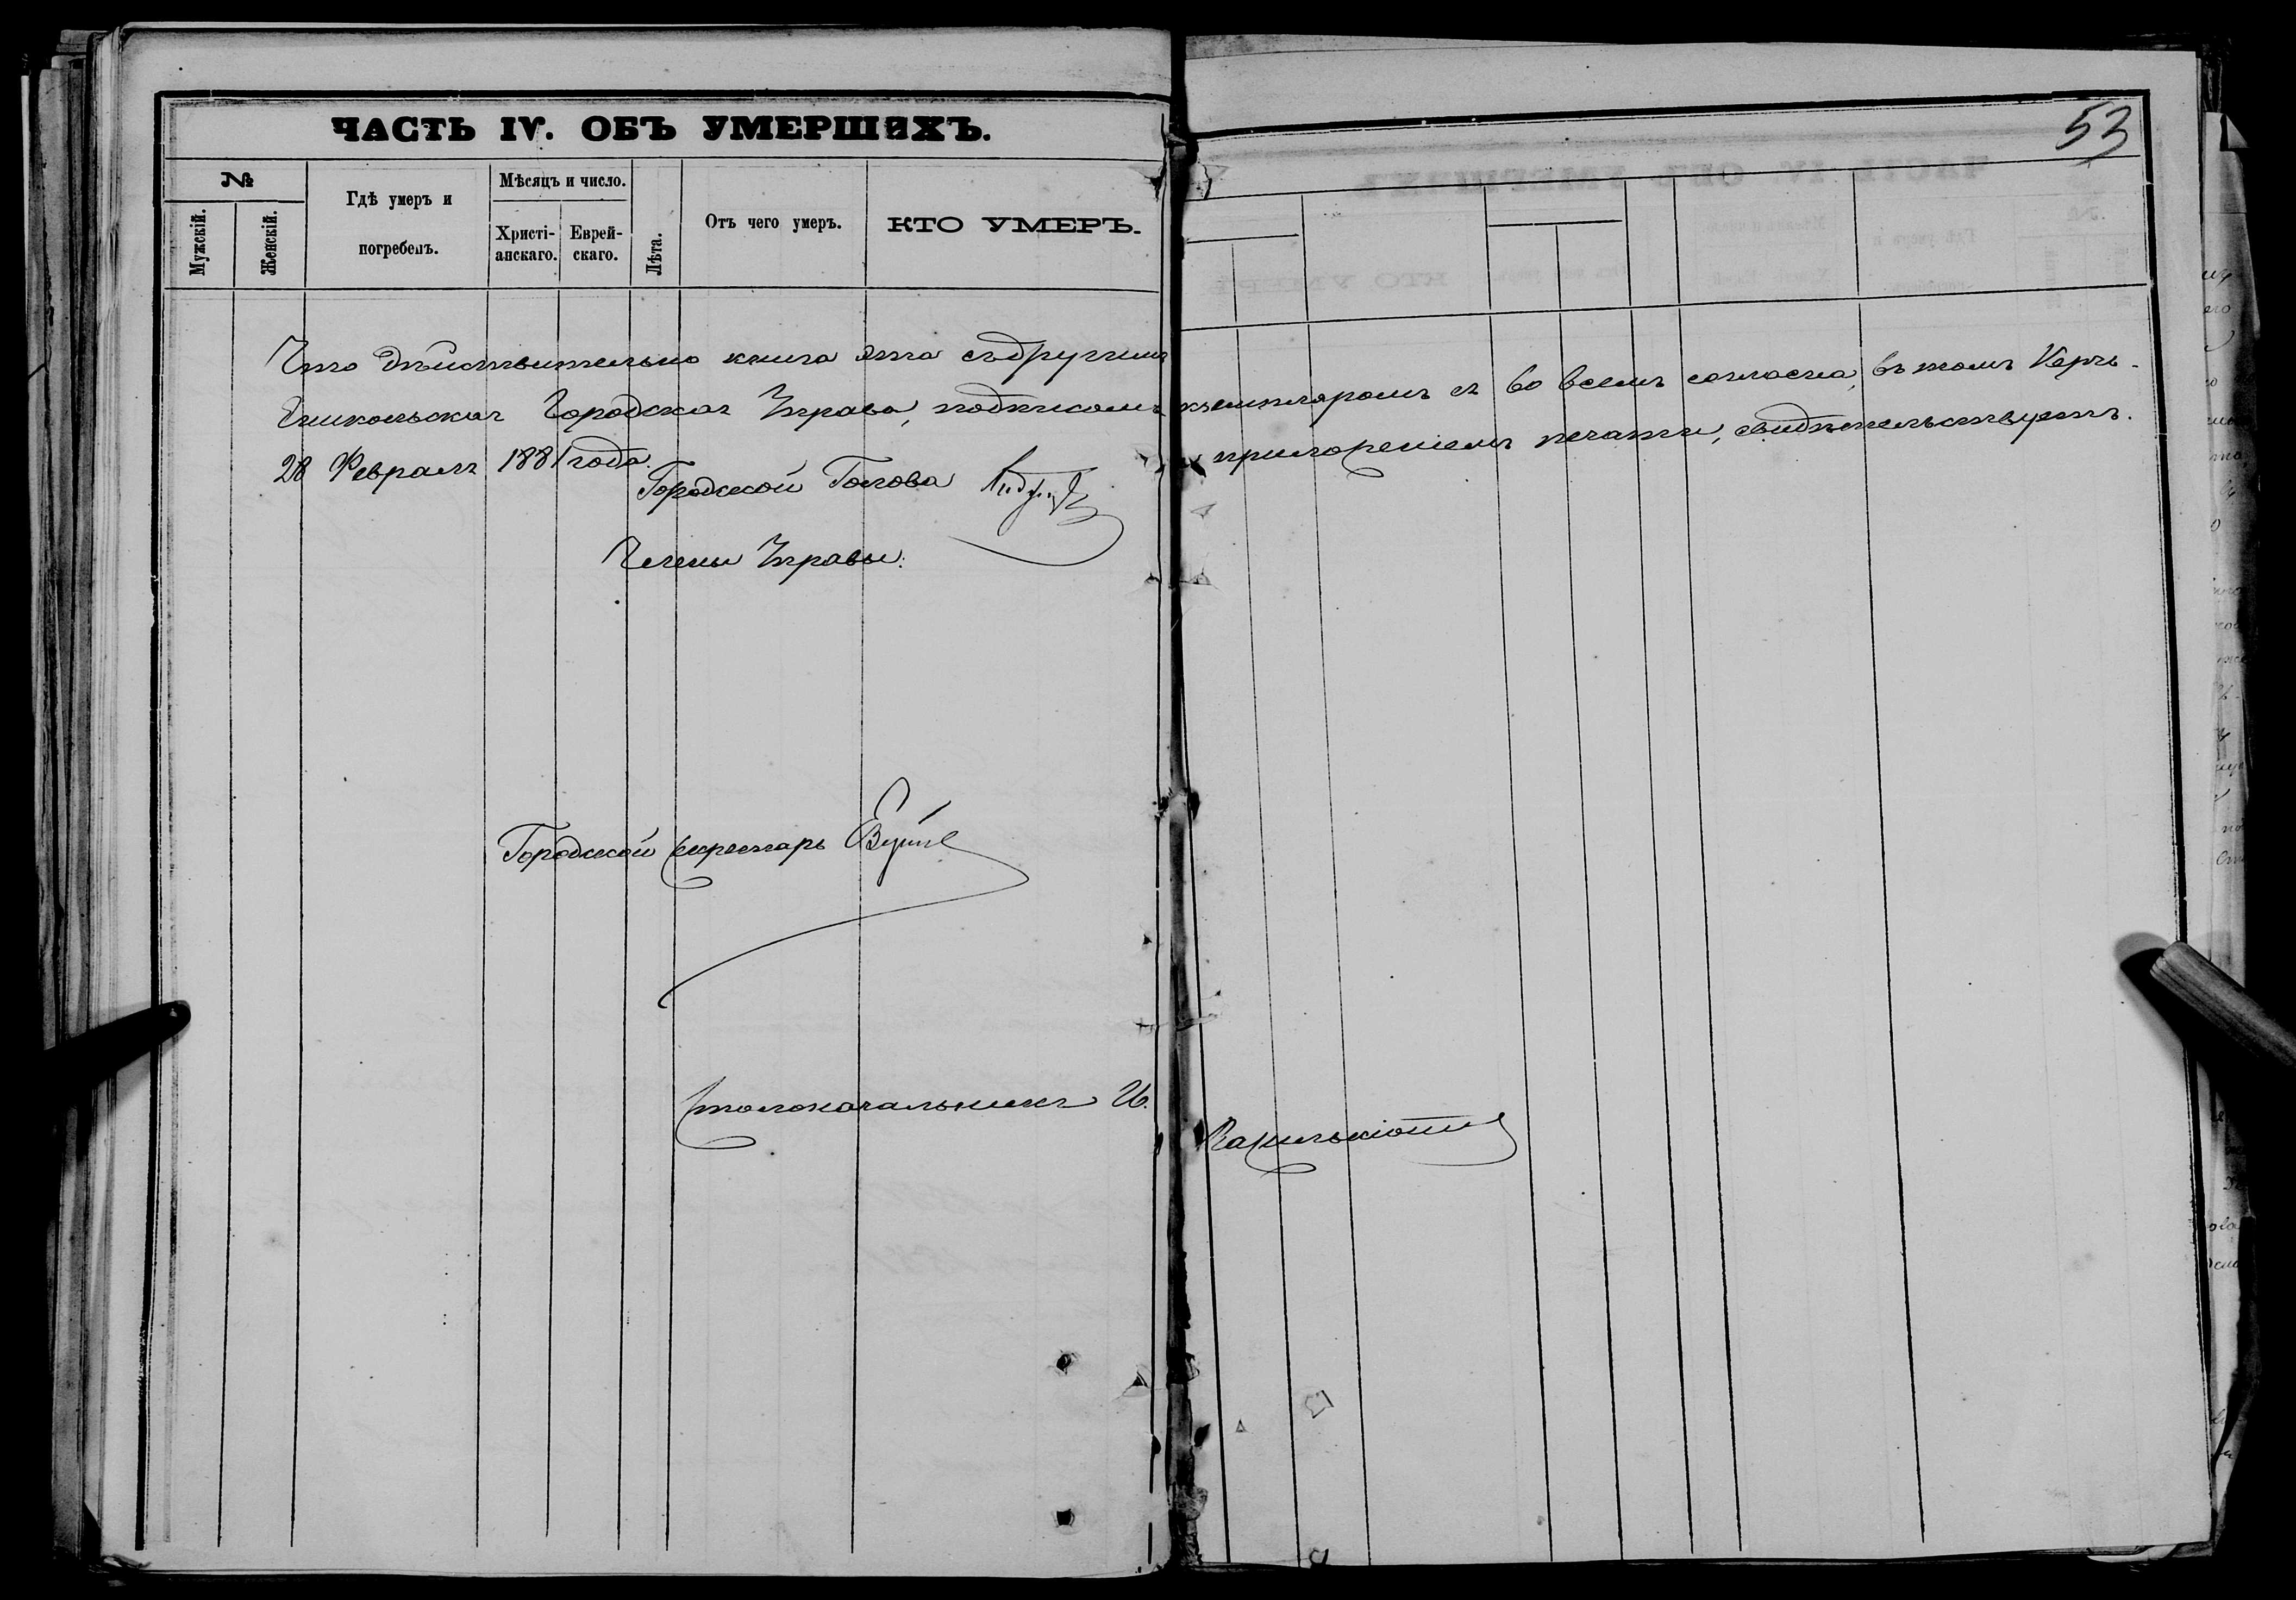 ЧАСТЬ IV. ОБЪ УМЕРШИХЪ.
53
№
Мужскій.
Женскій.
Гдѣ умеръ и
погребенъ.
Мѣсяцъ и число.
Христі-
анскаго.
Еврей-
скаго.
Лѣта.
Отъ чего умеръ.
КТО УМЕРЪ.
Что дѣйствительно книга эта съ другимъ экземпляромъ во всемъ согласна, въ томъ Керчь-
Еникольская Городская Управа, подписомъ приложеніемъ печати, свидѣтельствуетъ.
28 Февраля 1881 года.
Городской Голова
Члены Управы:
Городской секретарь
Столоначальникъ И.